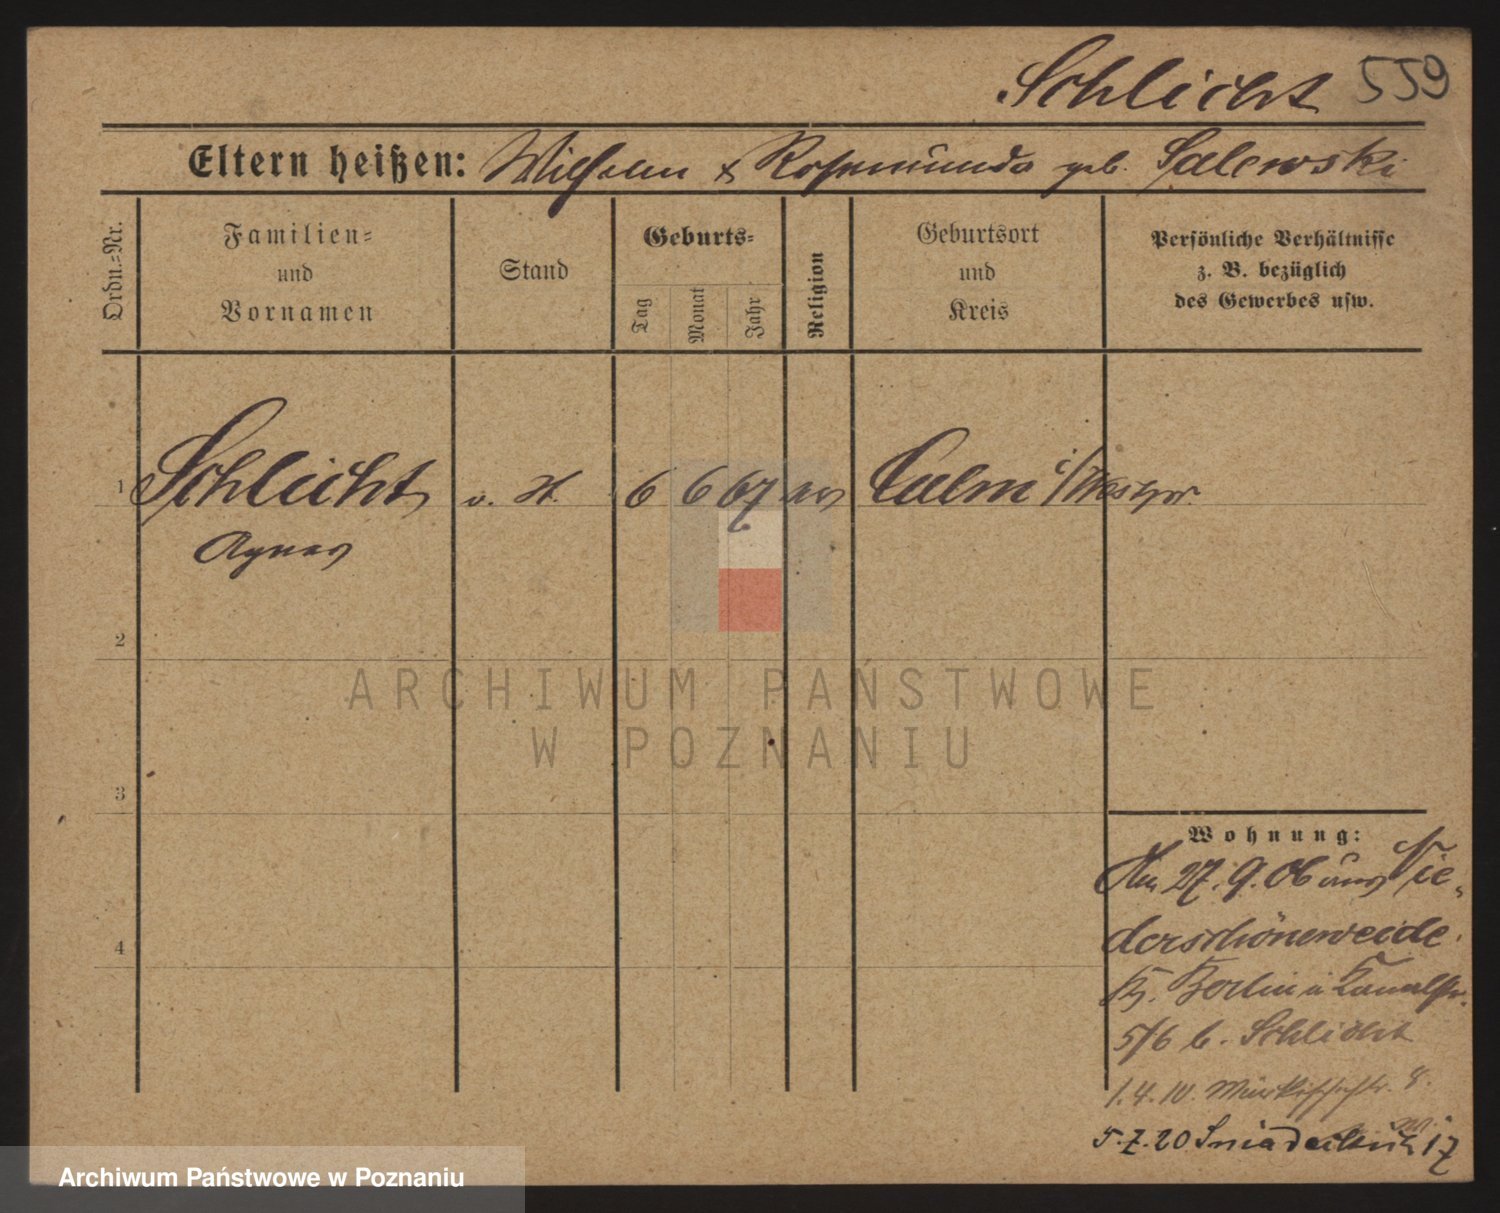 Schlicht 559
Eltern heißen: Wilhelm & Rosamunda geb. Salewski
Ordn.=Nr.
Familien=
und
Vornamen
Stand
Geburts=
Tag
Monat
Jahr
Religion
Geburtsort
und
Kreis
Persönliche Verhältnisse
z. B. bezüglich
des Gewerbes usw.
1 Schlicht o. St. 6 6 67 ev Culm i/Westpr.
Agnes
2
3
4
Wohnung:
Am 27. 9. 06 aus Nie-
derschöneweide.
Kr. Berlin n Kanalstr.
5/6 b. Schlicht
1.4.10. 8.
5.7.20 Śniadeckich 17
ARCHIWUM PAŃSTWOWE
W POZNANIU
Archiwum Państwowe w Poznaniu